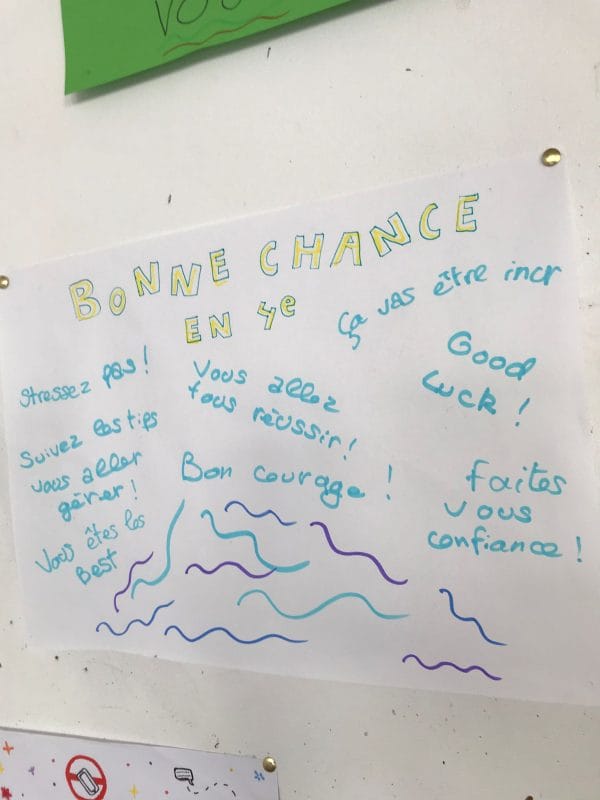 VOU
BONNE CHANCE
EN 4e
Stressez pas !
Suivez les tips
vous aller
gérer !
Vous êtes les
Best
Vous allez
tous réussir !
Bon courage !
Ça vas être incr
Good
Luck !
faites
vous
confiance !